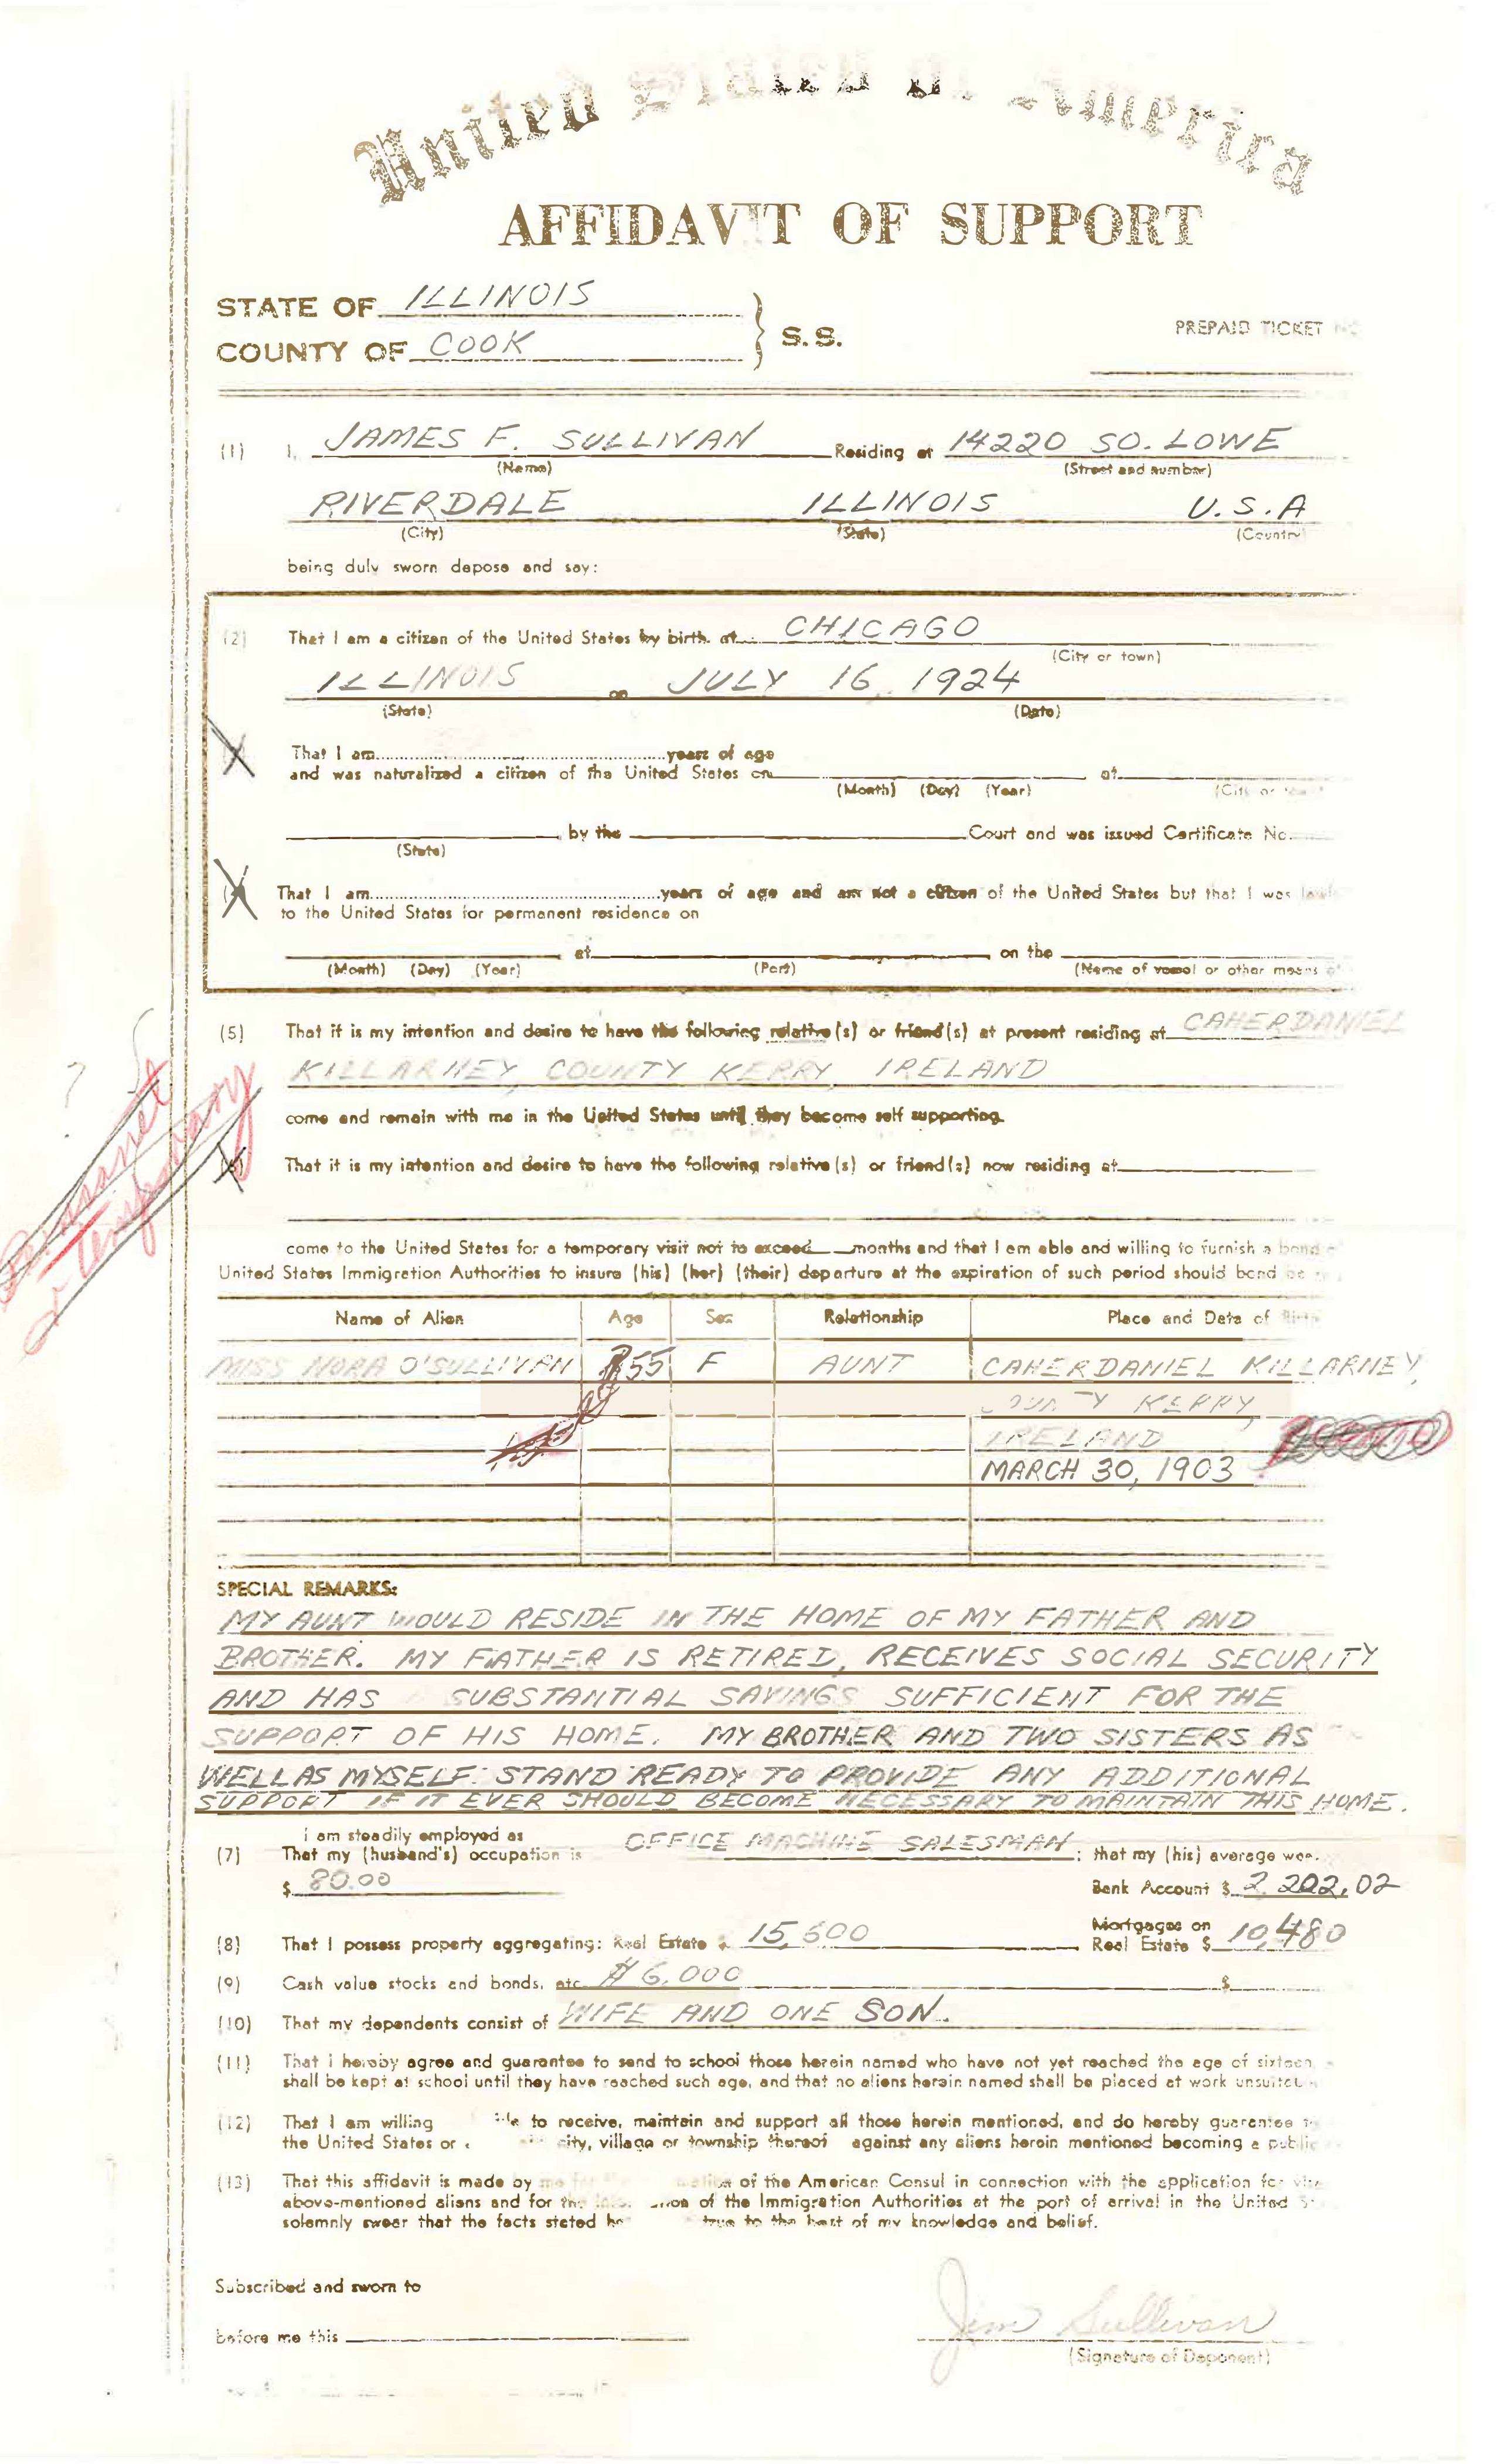 United States of America
AFFIDAVIT OF SUPPORT
STATE OF ILLINOIS
COUNTY OF COOK
} S.S.
PREPAID TICKET NO
(1) I, JAMES F. SULLIVAN Residing at 14220 SO. LOWE
(Name) (Street and number)
RIVERDALE ILLINOIS U.S.A
(City) (State) (Country)
being duly sworn depose and say:
(2) That I am a citizen of the United States by birth. at CHICAGO
(City or town)
ILLINOIS on JULY 16, 1924
(State) (Date)
That I am years of age
and was naturalized a citizen of the United States on at
(Month) (Day) (Year) (City or
by the Court and was issued Certificate No.
(State)
That I am years of age and am not a citizen of the United States but that I was
to the United States for permanent residence on
at on the
(Month) (Day) (Year) (Port) (Name of vessel or other means
(5) That it is my intention and desire to have the following relative(s) or friend(s) at present residing at CAHERDANIEL
KILLARNEY, COUNTY KERRY, IRELAND
?
come and remain with me in the United States until they become self supporting.
temporary
That it is my intention and desire to have the following relative(s) or friend(s) now residing at
come to the United States for a temporary visit not to exceed months and that I am able and willing to furnish a bond
United States Immigration Authorities to insure (his) (her) (their) departure at the expiration of such period should bond be
Name of Alien Age Sex Relationship Place and Date of Birth
MISS NORA O'SULLIVAN 55 F AUNT CAHERDANIEL KILLARNEY,
COUNTY KERRY,
IRELAND
MARCH 30, 1903
SPECIAL REMARKS:
MY AUNT WOULD RESIDE IN THE HOME OF MY FATHER AND
BROTHER. MY FATHER IS RETIRED, RECEIVES SOCIAL SECURITY
AND HAS SUBSTANTIAL SAVINGS SUFFICIENT FOR THE
SUPPORT OF HIS HOME. MY BROTHER AND TWO SISTERS AS
WELL AS MYSELF STAND READY TO PROVIDE ANY ADDITIONAL
SUPPORT IF IT EVER SHOULD BECOME NECESSARY TO MAINTAIN THIS HOME.
i am steadily employed as
(7) That my (husband's) occupation is OFFICE MACHINE SALESMAN; that my (his) average
$ 80.00 Bank Account $ 2,202.02
Mortgages on
(8) That I possess property aggregating: Real Estate $ 15,500 Real Estate $ 10,480
(9) Cash value stocks and bonds, etc. $ 6,000 $
(10) That my dependents consist of WIFE AND ONE SON.
(11) That i hereby agree and guarantee to send to school those herein named who have not yet reached the age of sixteen
shall be kept at school until they have reached such age, and that no aliens herein named shall be placed at work
(12) That I am willing to receive, maintain and support all those herein mentioned, and do hereby guarantee
the United States or city, village or township thereof against any aliens herein mentioned becoming a public
(13) That this affidavit is made by me for of the American Consul in connection with the application for
above-mentioned aliens and for the of the Immigration Authorities at the port of arrival in the United
solemnly swear that the facts stated true to the best of my knowledge and belief.
Subscribed and sworn to
before me this
Jim Sullivan
(Signature of Deponent)